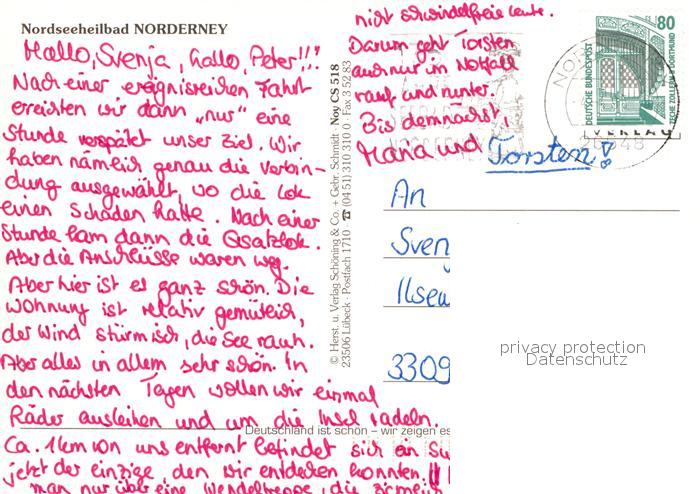 Nordseeheilbad NORDERNEY
Hallo, Svenja, hallo, Peter!!!
Nach einer ereignisreichen Fahrt
erreichten wir dann „nur" eine
Stunde verspätet unser Ziel. Wir
haben nämlich genau die Verbin-
dung ausgewählt, wo die Lok
einen Schaden hatte. Nach einer
Stunde kam dann die Ersatzlok.
Aber die Anschlüsse waren weg.
Aber hier ist es ganz schön. Die
Wohnung ist relativ gemütlich,
der Wind stürmisch, die See rauh.
Aber alles in allem sehr schön. In
den nächsten Tagen wollen wir einmal
Räder ausleihen und um die Insel radeln.
Ca. 1km von uns entfernt befindet sich ein
jetzt der einzige, den wir entdecken konnten.
man nur über eine Wendeltreppe, die ziemlich
nicht schwindelfreie Leute.
Darum geht Torsten
auch nur im Notfall
rauf und runter.
Bis demnächst,
Maria und Torsten!
© Herst. u. Verlag Schöning & Co. + Gebr. Schmidt · Noy CS 518
23506 Lübeck · Postfach 1710 · ☎ (04 51) 310 310 0 · Fax 3 52 83
Deutschland ist schön – wir zeigen es
80
DEUTSCHE BUNDESPOST
ZECHE ZOLLERN II DORTMUND
VERLAG
26548
An
Sven
Ilsew
3309
privacy protection
Datenschutz